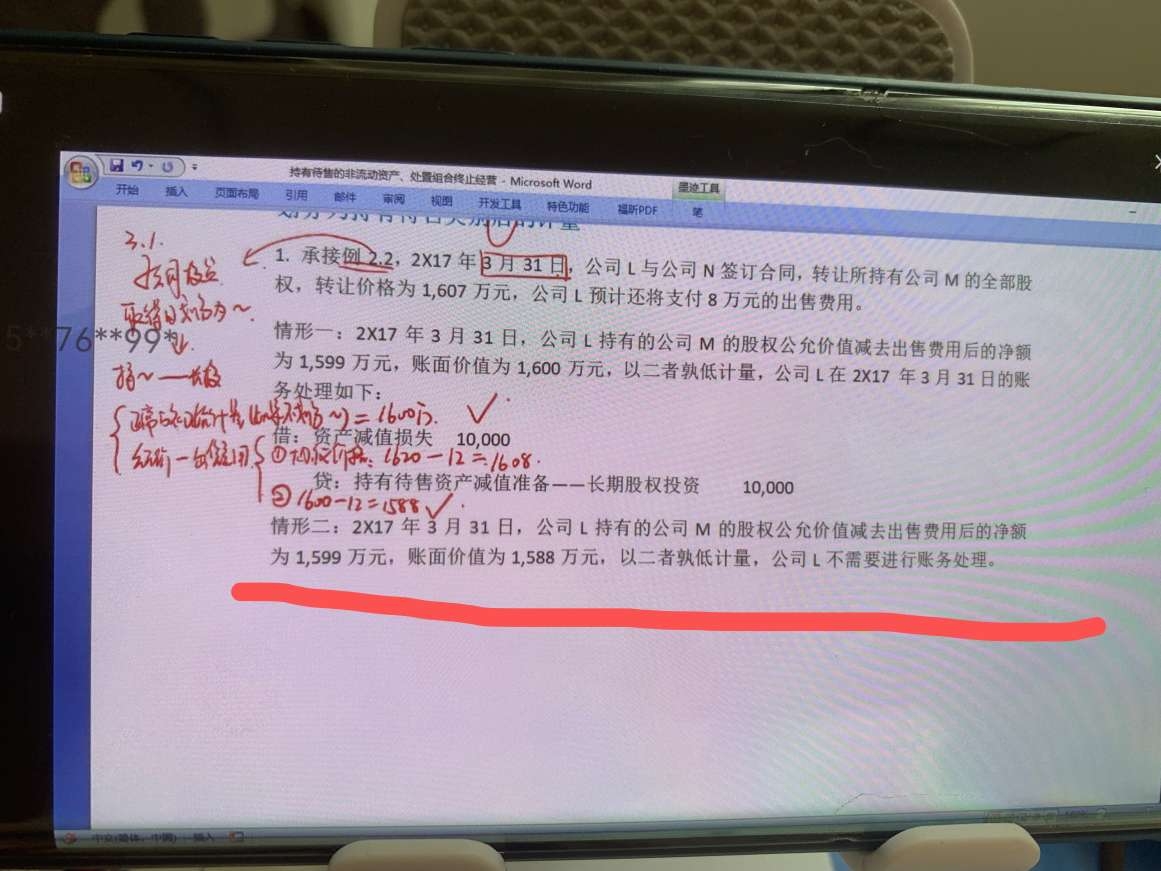 持有待售的非流动资产、处置组合终止经营 - Microsoft Word
墨迹工具
开始 插入 页面布局 引用 邮件 审阅 视图 开发工具 特色功能 福昕PDF 笔
3.1.
1. 承接例 2.2，2X17 年 3 月 31 日，公司 L 与公司 N 签订合同，转让所持有公司 M 的全部股
权，转让价格为 1,607 万元，公司 L 预计还将支付 8 万元的出售费用。
76**99*
情形一：2X17 年 3 月 31 日，公司 L 持有的公司 M 的股权公允价值减去出售费用后的净额
为 1,599 万元，账面价值为 1,600 万元，以二者孰低计量，公司 L 在 2X17 年 3 月 31 日的账
务处理如下：
=1600万.
借：资产减值损失 10,000
1620-12=1608.
贷：持有待售资产减值准备——长期股权投资 10,000
② 1600-12=1588
情形二：2X17 年 3 月 31 日，公司 L 持有的公司 M 的股权公允价值减去出售费用后的净额
为 1,599 万元，账面价值为 1,588 万元，以二者孰低计量，公司 L 不需要进行账务处理。
中文(简体，中国) 插入